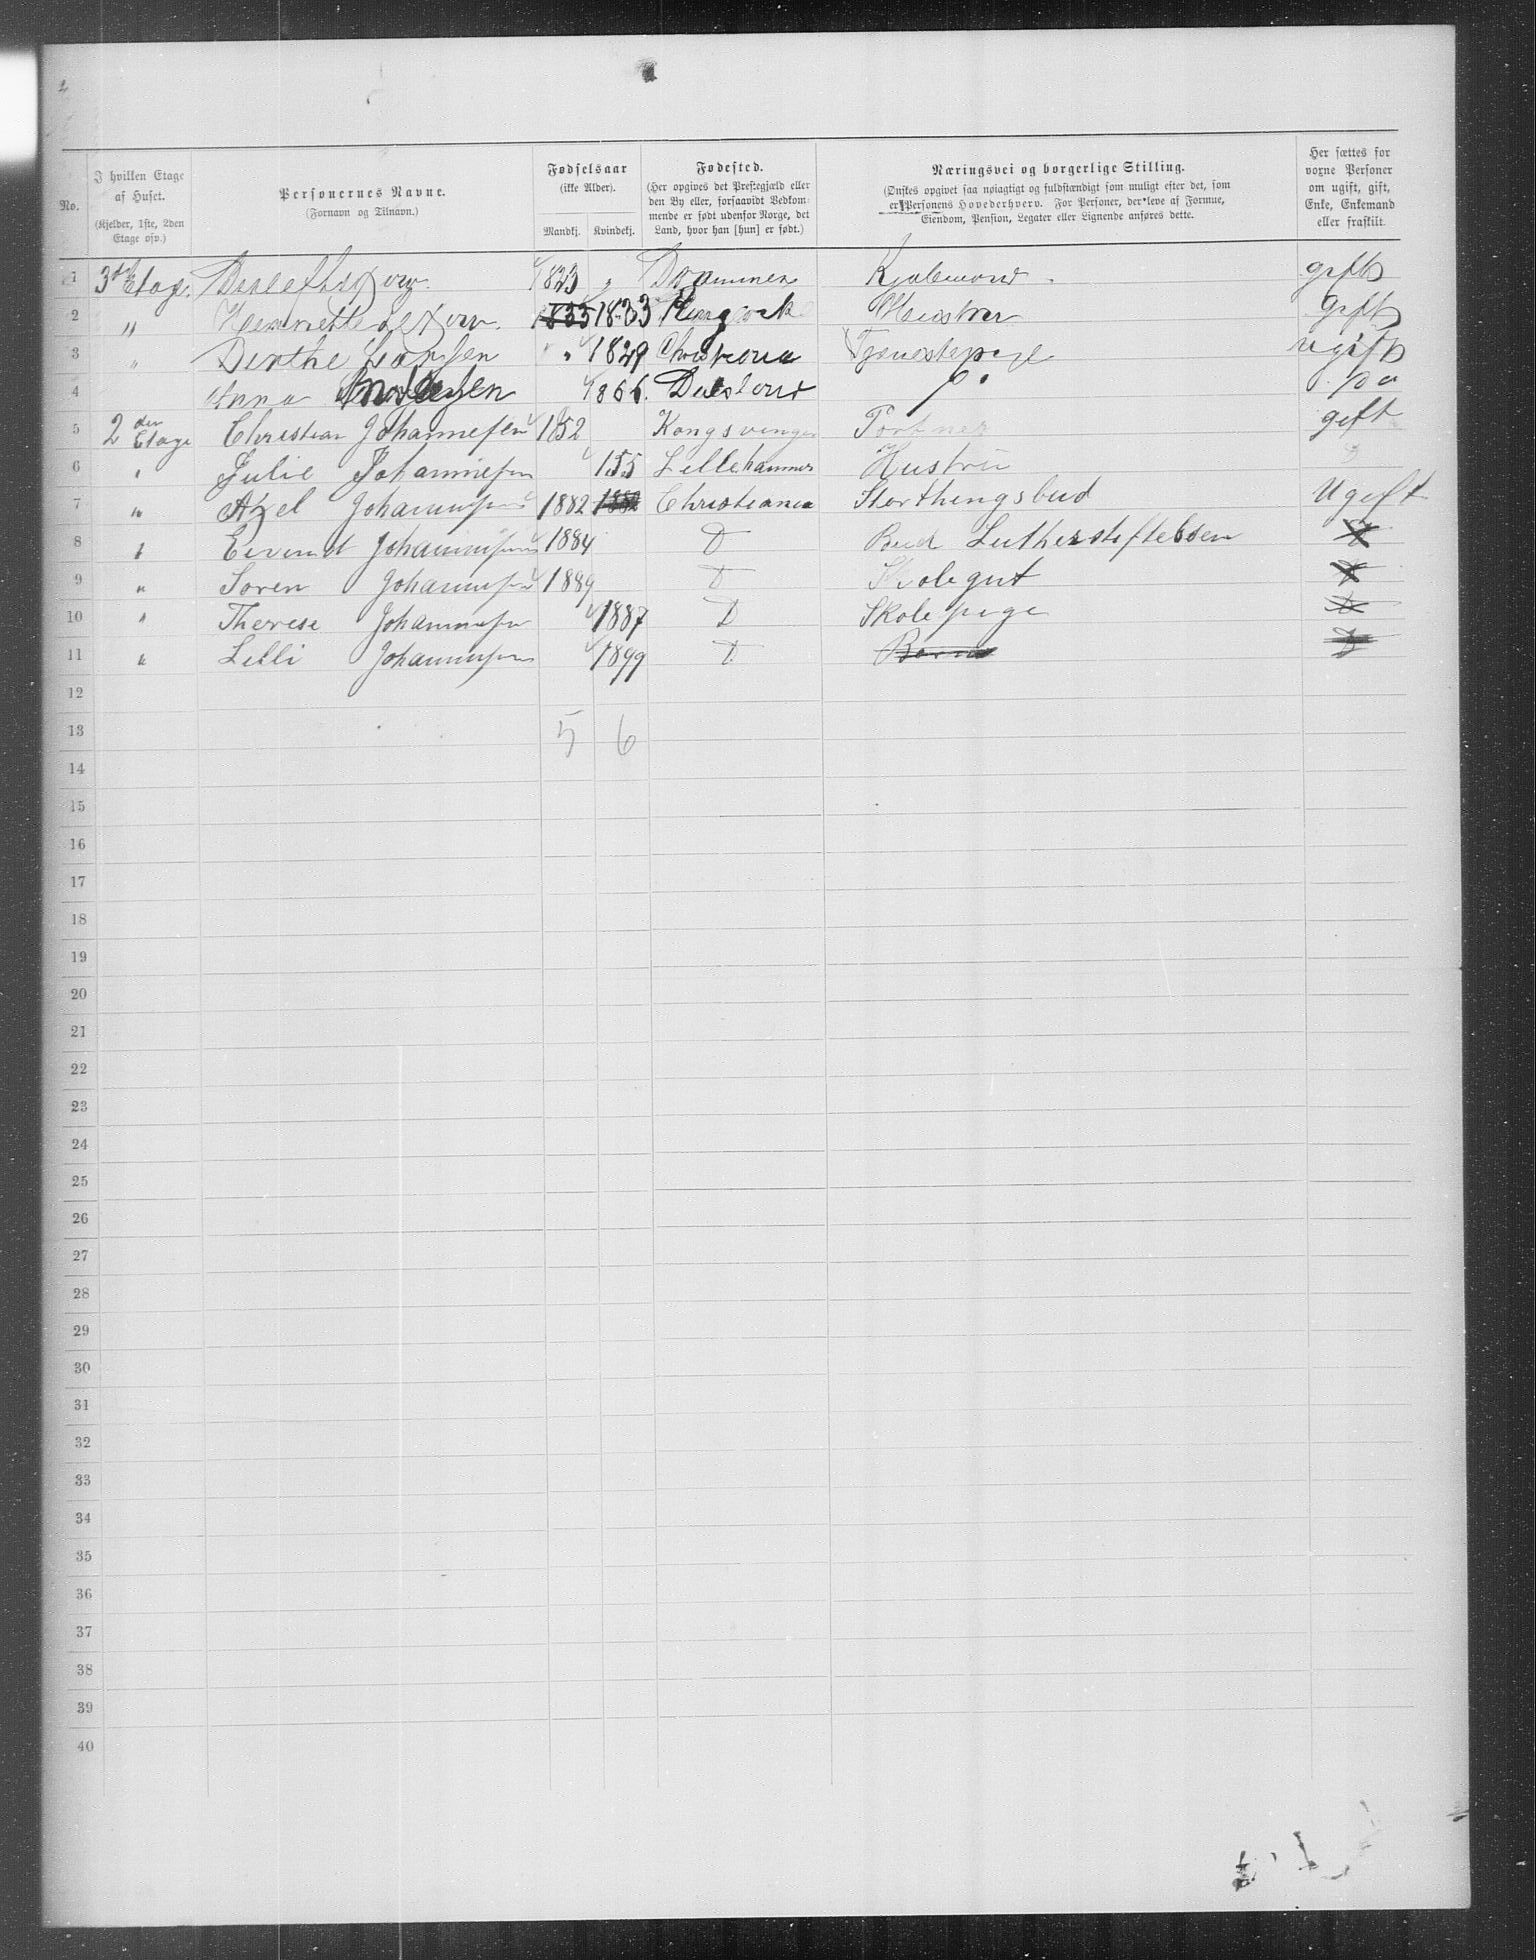 No.
I hvilken Etage af Huset. (Kjelder, 1ste, 2den Etage osv.)
Personernes Navne. (Fornavn og Tilnavn.)
Fødselsaar (ikke Alder). Mandkj. Kvindekj.
Fødested. (Her opgives det Prestegjæld eller den By eller, forsaavidt Vedkommende er født udenfor Norge, det Land, hvor han [hun] er født.)
Næringsvei og borgerlige Stilling. (Ønskes opgivet saa nøiagtigt og fuldstændigt som muligt efter det, som er Personens Hovederhverv. For Personer, der leve af Formue, Eiendom, Pension, Legater eller Lignende anføres dette.)
Her sættes for voxne Personer om ugift, gift, Enke, Enkemand eller fraskilt.
1 3die Etage 1823 " Drammen Kjøbmand gift
2 " Henriette 1835 1833 Hustru gift
3 " Berthe " " 1829 Christiania Tjenestepige ugift
4 Anna 1866. Do
5 2den Etage Christian Johannesen 1852 Kongsvinger Portner gift
6 " Julie Johannesen 155 Lillehammer Hustru
7 " Axel Johannesen 1882 1882 Christiania Storthingsbud Ugift
8 " Eivind Johannesen 1884 D Bud D
9 " Soren Johannesen 1889 D Skolegut D
10 " Therese Johannesen 1887 D Skolepige D
11 " Lilli Johannesen 1899 D Barn D
12
13 5 6
14
15
16
17
18
19
20
21
22
23
24
25
26
27
28
29
30
31
32
33
34
35
36
37
38
39
40